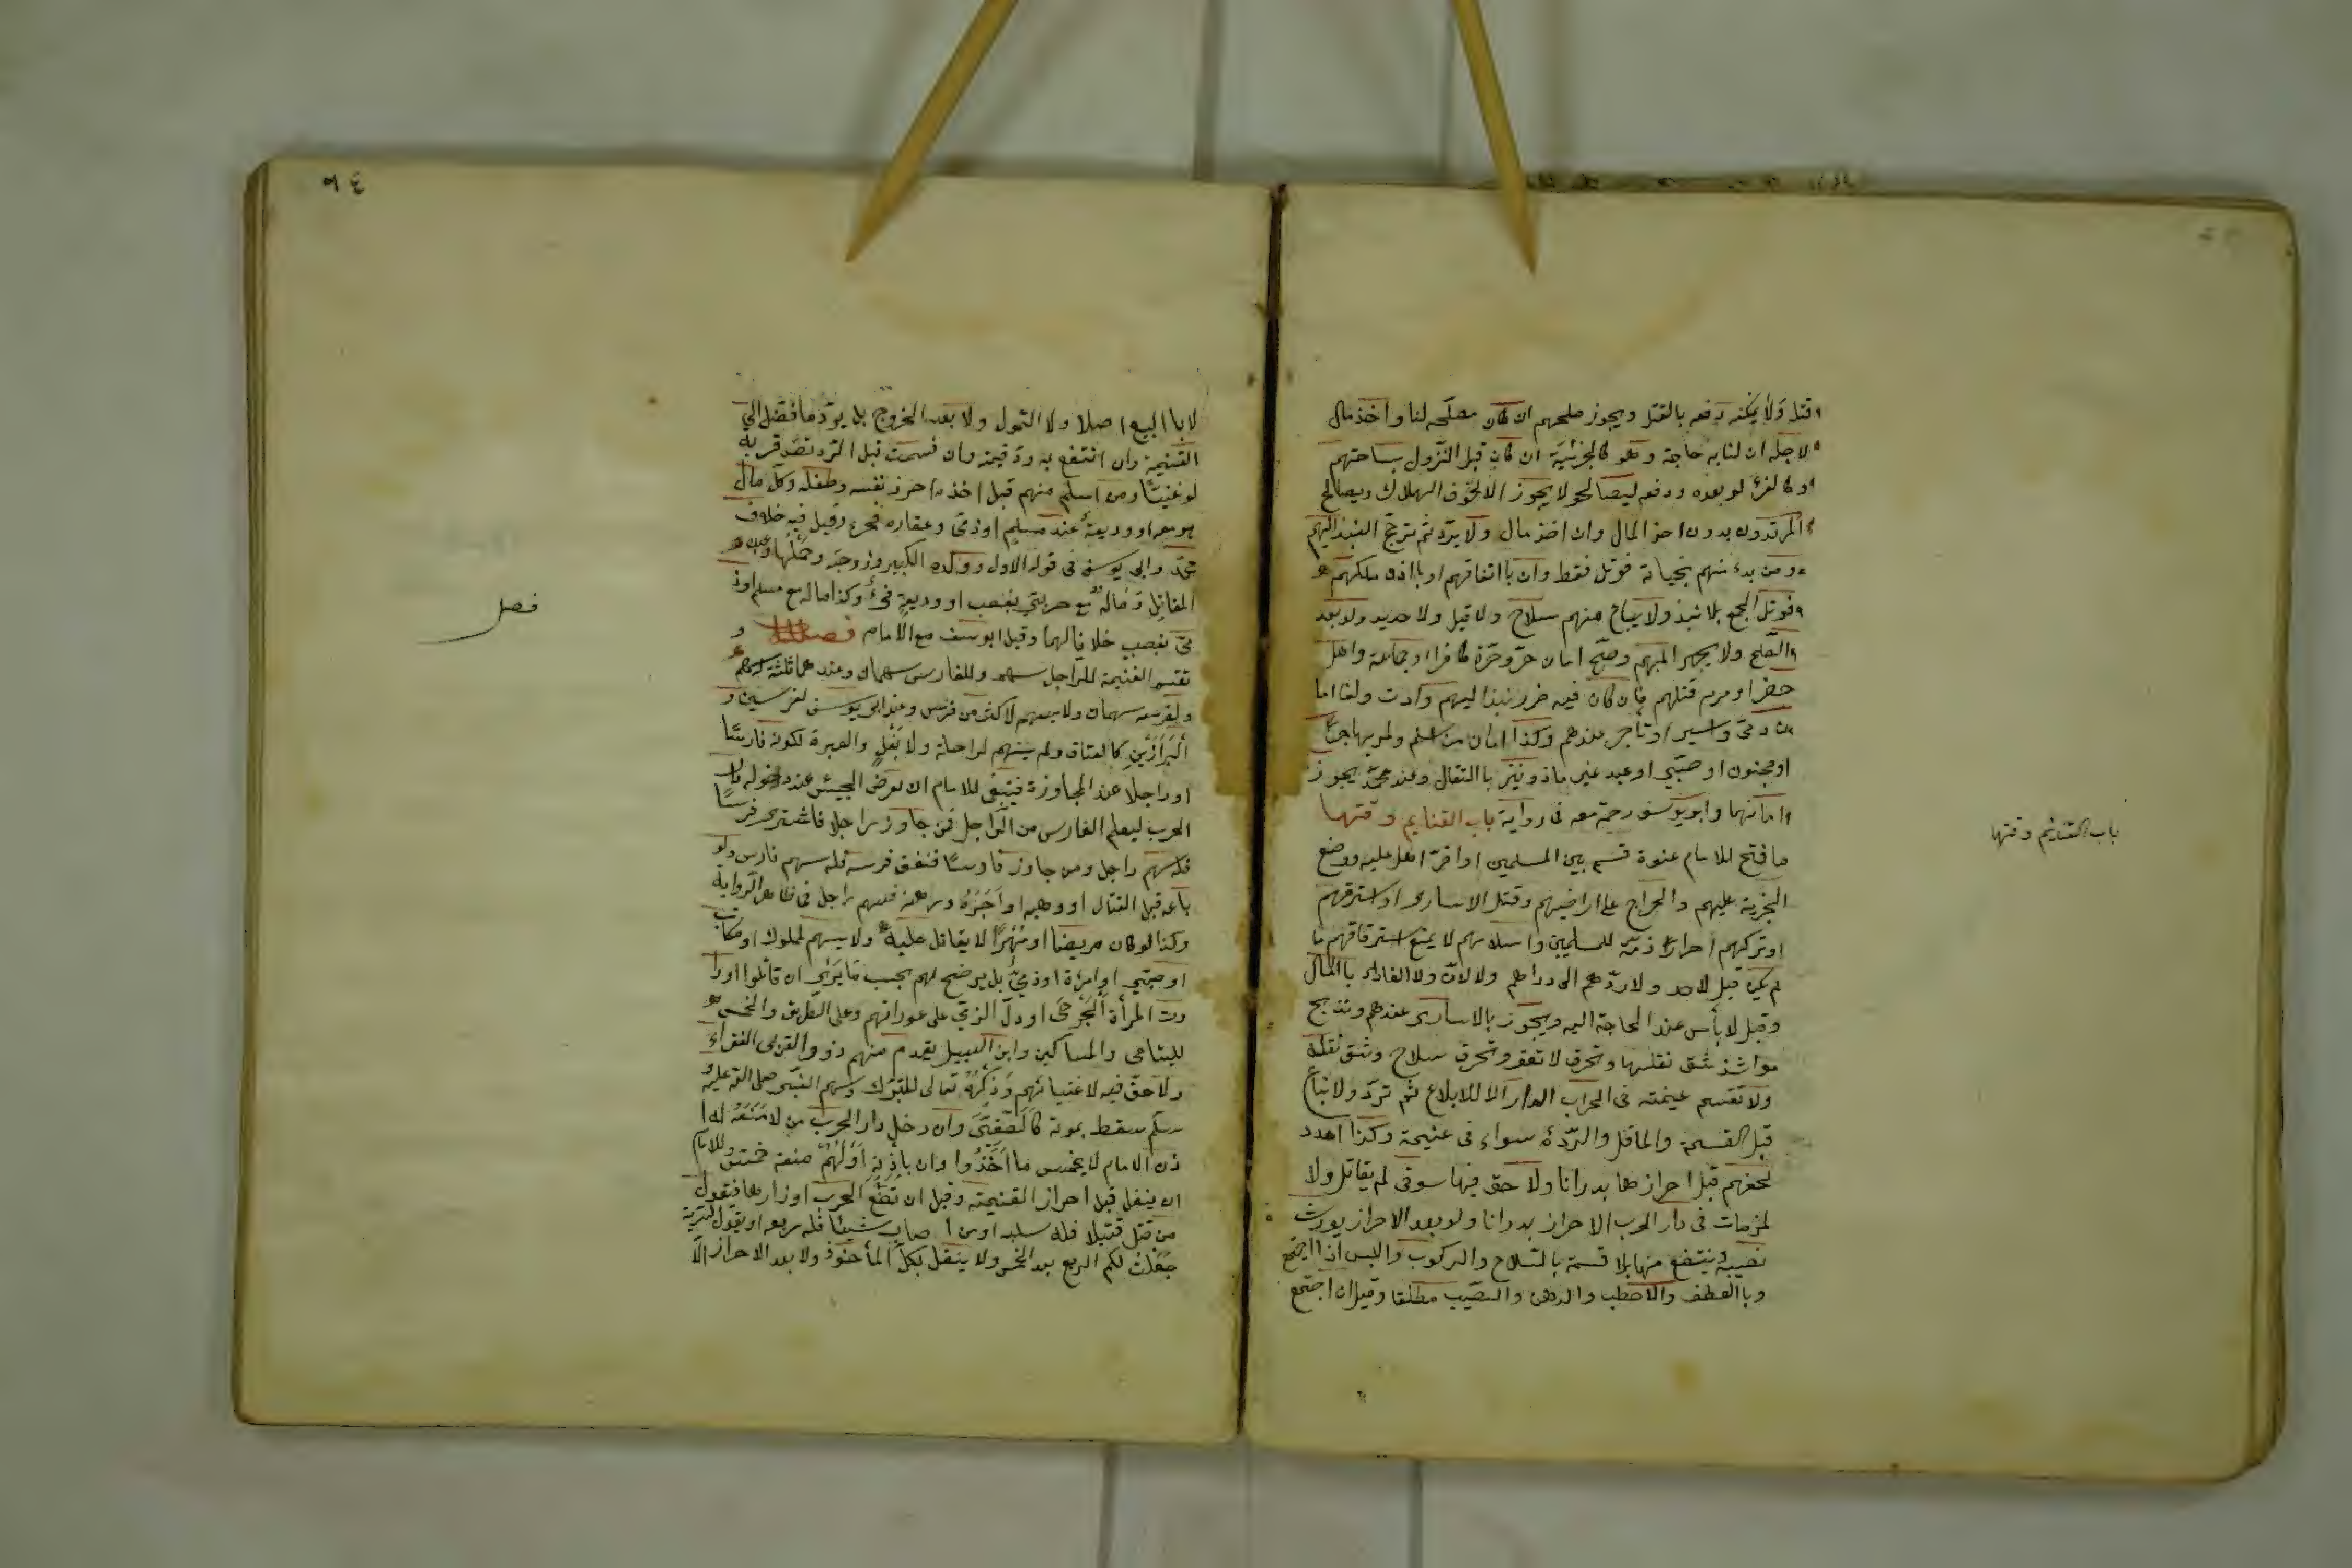 قتل ولا يمكنه دفعه بالقتل ويجوز صلحهم ان كان مصلحه لنا واخذ مال
لاجله ان لنا به حاجة وهو كالجزئية ان كان قبل النزول بساحتهم
لو بعده ودفعه ليصالحو لا يجوز الا لخوف الهلاك ويصالح
المرتدون بدون اخذ المال وان اخذ مال ولا يرد ثم ترجح النبذ اليهم
ومن بدء منهم بخيانة قوتل فقط وان باتفاقهم او باذن ملكهم
قوتل الجمع بلا نبذ ولا يباع منهم سلاح ولا حديد ولو بعد
الصلح ولا يجهز اليهم وصح امان حر وحرة كافرا او جماعة واهل
حضر او مرم قتلهم فان كان فيه ضرر نبذ اليهم وادت ولغا اما
ن ذمي واسير او تاجر عندهم وكذا امان من اسلم ولم يهاجر
او مجنون او صبي او عبد غير ماذونين باالقتال وعند محمد يجوز
امانهما وابو يوسف رحمه معه فى رواية باب الغنايم وقتها
ما فتح للامام عنوة قسم بين المسلمين او اقر اهله عليه ووضع
الجزية عليهم والخراج على اراضيهم وقتل الاسارى او استرقهم
او تركهم احرارا ذمة للمسلمين واسلامهم لا يمنع استرقاقهم ما
لم يكن قبل لاحد ولا ردهم الى دارهم ولا لان ولا الفداء باالمال
وقيل لا بأس عند الحاجة اليه ويجوز بالاسارى عندهم وتذبح
مواش شق نقلها وتحرق لا تعقر وتحرق سلاح وشق نقله
ولا تقسم غيمته فى الحراب الدار الا للابلاع ثم ترد ولا تباع
قبل القسمة والمقاتل والردء سواء فى غنيمة وكذا امدد
لحقهم قبل احرازها بدرانا ولا حق فيها سوقى لم يقاتل ولا
لمن مات فى دار الحرب الاحراز بدرانا ولو بعد الاحراز يورث
نصيبه وينتفع منها بلا قسمة بالسلاح والركوب واللبس اذا احتيج
وباالعلف والاحطب والدهن والنصيب مطلقا وقيل ان احتيج
باب الغنايم وقتها
٩٤
لا باالبيع اصلا ولا التمول ولا بعد الخروج بل يرد ما فضل الى
الغنيمة وان انتفع به رد قيمته وان قسمت قبل الرد تصدق به
لو غنيا ومن اسلم منهم قبل اخذه احرز نفسه وطفله وكل مال
هو معه او وديعة عند مسلم او ذمى وعقاره فيء وقيل فيه خلاف
محمد وابى يوسف فى قوله الاول وولده الكبير وزوجته وحملها وعبده
المقاتل وماله مع حربي بغصب او وديعة فيء وكذا ماله مع مسلم او ذ
مى بغصب خلافا لهما وقيل ابو يوسف مع الامام فصل و
تقسم الغنيمة للراجل سهم وللفارس سهمان وعندهما ثلثة اسهم
ولفرسه سهمان ولا يسهم لاكثر من فرس وعند ابى يوسف لفرسين و
البرازين كالعتاق ولم يسهم لراحلة ولا بغل والعبرة لكونه فارسا
او راجلا عند المجاوزة فينبغى للامام ان يعرض الجيش عند دخوله دار
الحرب ليعلم الفارس من الراجل فمن جاوز راجلا فاشترى فرسا
فله سهم راجل ومن جاوز فارسا فنفق فرسه فله سهم فارس ولو
باعه قبل القتال او وهبه او اجزه ورهنه فسهم راجل فى ظاهر الرواية
وكذا لو كان مريضا او مهرا لا يقاتل عليه ولا يسهم لمملوك او مكاتب
او صبي او امرة او ذمي بل يرضح لهم بحسب ما يرى ان قاتلوا او دا
وت المرأة الجرحى او دل الذمي على عوراتهم وعلى الطريق والخمس
لليتامى والمساكين وابن السبيل يقدم منهم ذووا القربى الفقراء
ولا حق فيه لاغنيائهم وذكره تعالى للتبرك وسهم النبى صلى الله عليه و
سلم سقط بموته كالصفي وان دخل دار الحرب من لا منعة له ا
ذن الامام لا يخمس ما اخذوا وان باذنه او لهم منعة خمس وللامام
ان ينفل قبل احراز الغنيمة وقبل ان تضع الحرب اوزارها فيقول
من قتل قتيلا فله سلبه او من اصاب شيئا فله ربعه او يقول لسرية
جعلت لكم الربع بعد الخمس ولا ينفل بكل المأخوذ ولا بعد الاحراز الا
فصل